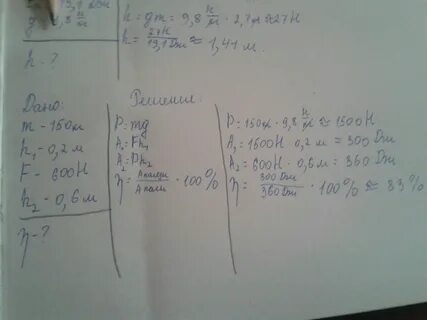 19,1 Дж
h = gm = 9,8 Н/кг · 2,7кг ≈ 27 Н
h = 27Н/19,1 Дж ≈ 1,41 м.
h - ?
Дано:
m - 150кг
h₁ - 0,2 м
F - 600Н
h₂ - 0,6 м
η - ?
Решение
P = mg
A₁ = Fh₁
A₂ = Ph₂
η = Aполезн/Aполн · 100%
P = 150кг · 9,8 Н/кг ≈ 1500Н
A₁ = 1600Н 0,2 м = 300 Дж
A₂ = 600Н · 0,6 м = 360 Дж
η = 300 Дж/360 Дж · 100% ≈ 83%